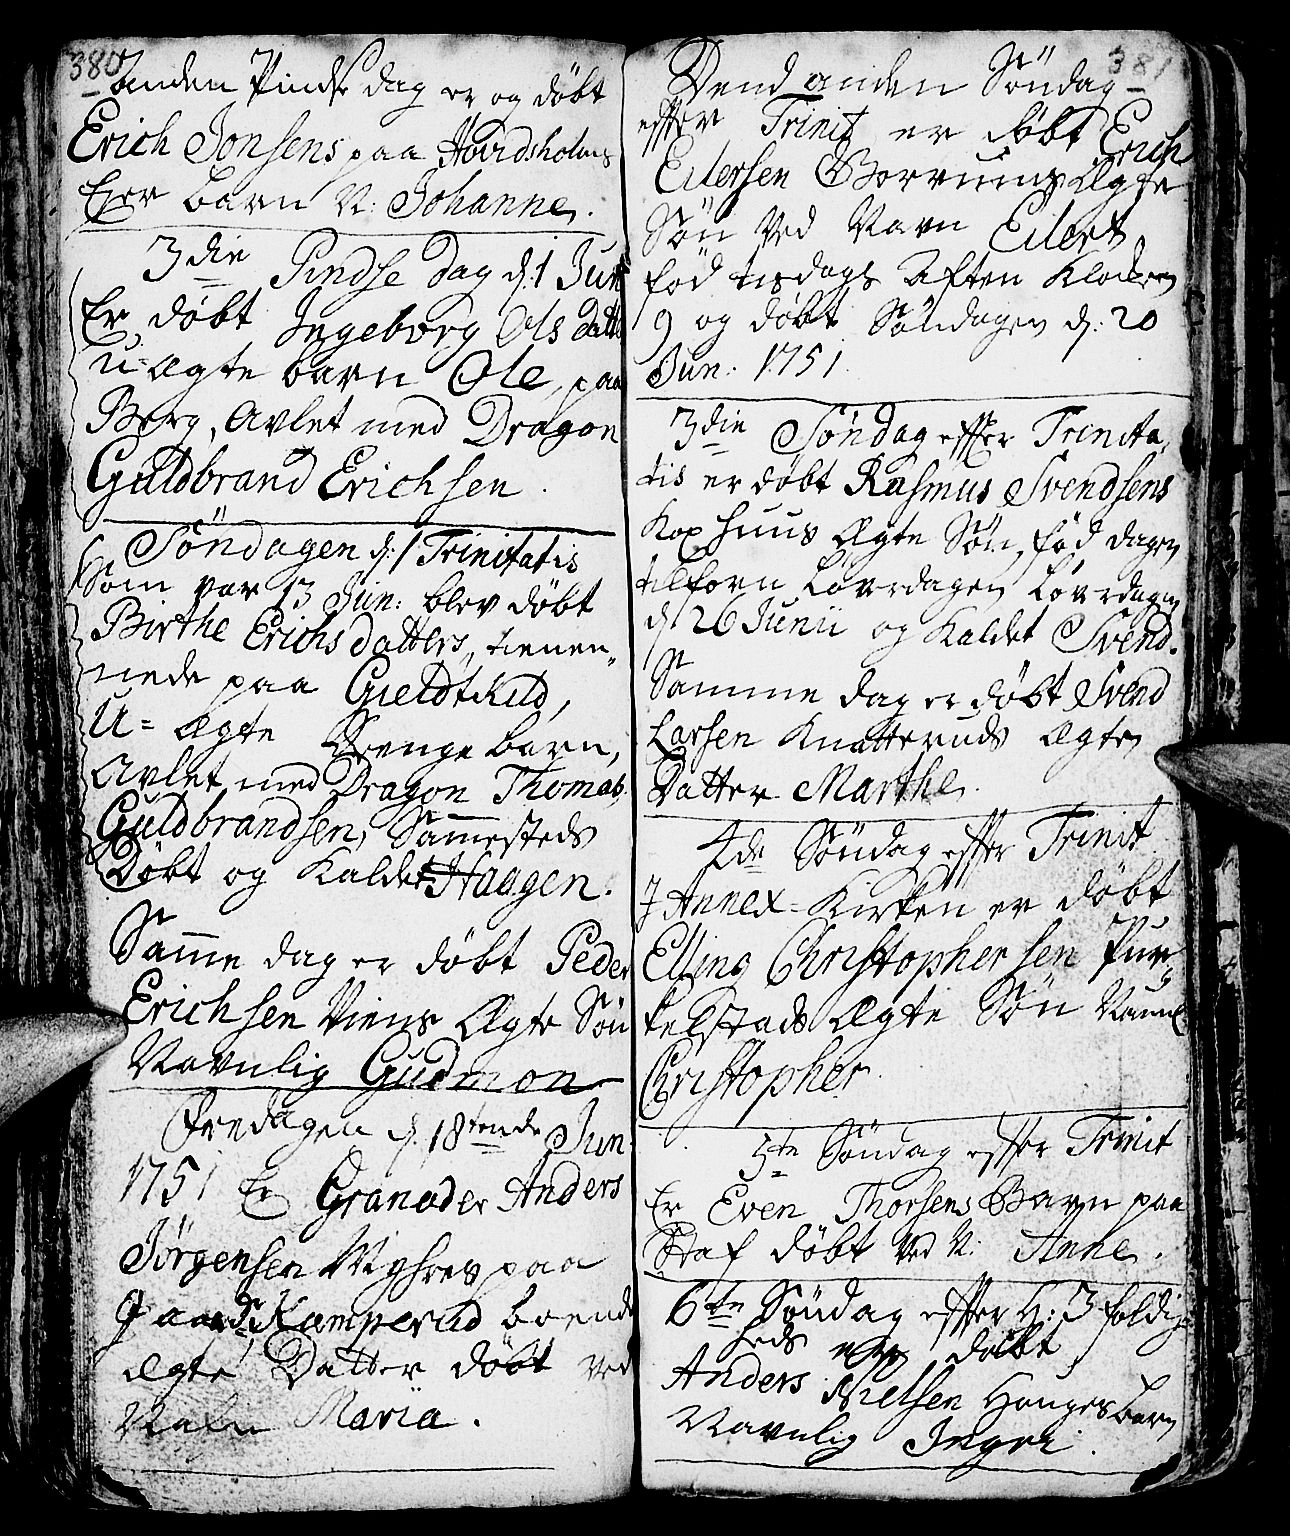 380
anden Pindse dag er og døbt
Erich Jonsens paa Hovidsholms
Eier barn N: Johanne.
3die Pindse dag d. 1 Jun
Er døbt Ingeborg Ols datt
u-ægte barn Ole, paa
Berg, Avlet med Dragon
Guldbrand Erichsen.
Søndagen d: 1 Trinitatis
Som var 13 Jun: blev døbt
Birthe Erichs datters, tienen-
nede paa Gieldtkild,
U-ægte Drenge barn,
Avlet med Dragon Thomas
Guldbrandsen, Sam̄esteds
Døbt og Kaldet Haagen.
Sam̄e dag er døbt Peder
Erichsen Viens Ægte Søn
Navnlig Gudmon
Fredagen d. 18tende Jun
1751 Er Granader Anders
Jørgensen Myhres paa
Kamperud boende
ægte Datter døbt ved
Navn Maria.
381
Dend anden Søndag
effter Trinit er døbt Erich
Eilersen Borrums Ægte
Søn Ved Navn Eilert,
fød tisdags Aften Klocken
9 og døbt Søndagen d: 20
Jun: 1751.
3die Søndag effter Trinita
tis er døbt Rasmus Svendsens
Kox huus Ægte Søn, fød dagen
tilforn Løverdagen Løverdagen
d 26 Junii og Kaldet Svend.
Samme dag er døbt Svend
Larsen Knatteruds ægte
Datter Marthe.
4de Søndag effter Trinit.
I Annex-Kirken er døbt
Elling Christophersen Pur
kelstads Ægte Søn Navnl
Christopher.
5te Søndag effter Trinit
Er Even Thorsens Barn paa
Staf døbt ved N: Anne.
6te Søndag effter H: 3 foldig-
heds er døbt
Anders Nielsen Hauges barn
Navnlig Ingri.